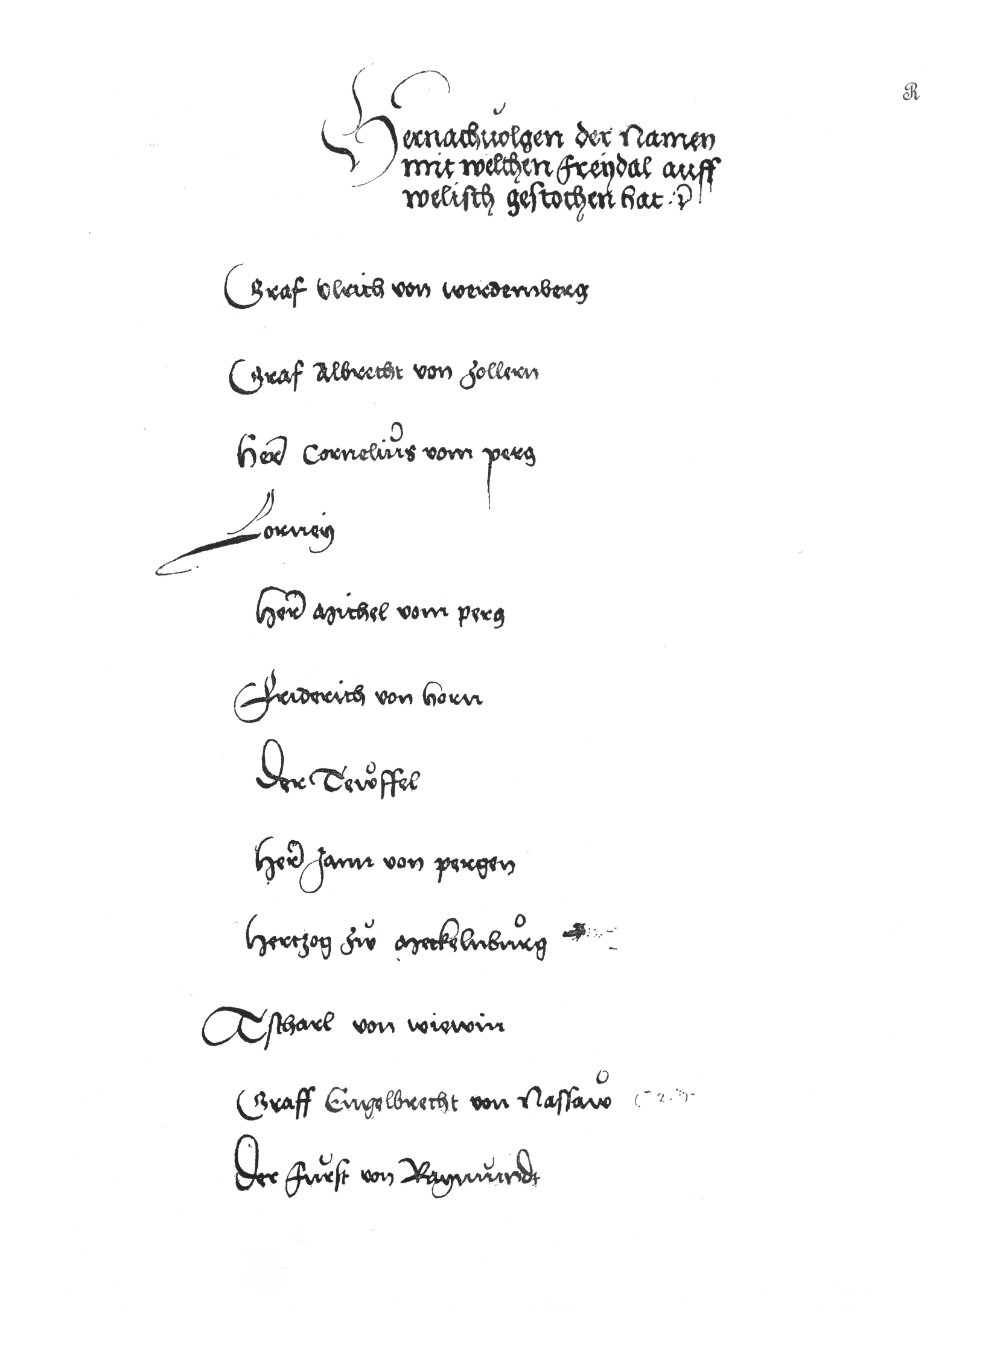 R
Hernachuolgen der Namen
mit welchen Freydal auff
welisch gestochen hat
Graf Vlrich von werdemberg
Graf Albrecht von zollern
Her Cornelius vom perg
Lorney
Her Michel vom perg
Friderich von horn
Der Tewffel
Her Jann von pergen
Hertzog zw Meckelnburg
Tscharl von wiewin
Graff Engelbrecht von Nassaw
Der Furst von Raymundt